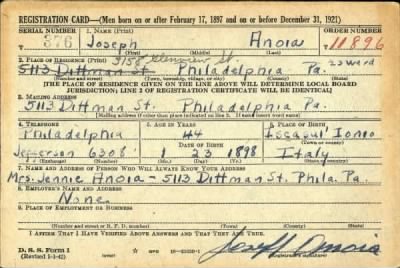 REGISTRATION CARD—(Men born on or after February 17, 1897 and on or before December 31, 1921)
SERIAL NUMBER 1. NAME (Print) ORDER NUMBER
376 Joseph Anoia 11896
(First) (Middle) (Last)
2. PLACE OF RESIDENCE (Print) 3158 St. 23 ward
5113 Dittman St Philadelphia Pa.
(Number and street) (Town, township, village, or city) (County) (State)
[THE PLACE OF RESIDENCE GIVEN ON THE LINE ABOVE WILL DETERMINE LOCAL BOARD
JURISDICTION; LINE 2 OF REGISTRATION CERTIFICATE WILL BE IDENTICAL]
3. MAILING ADDRESS
5113 Dittman St. Philadelphia Pa.
[Mailing address if other than place indicated on line 2. If same insert word same]
4. TELEPHONE 5. AGE IN YEARS 6. PLACE OF BIRTH
Philadelphia 44 Iscasul Ionio
DATE OF BIRTH
Jefferson 6308 1 23 1898 Italy
7. NAME AND ADDRESS OF PERSON WHO WILL ALWAYS KNOW YOUR ADDRESS
Mrs. Jennie Anoia - 5113 Dittman St. Phila. Pa.
8. EMPLOYER'S NAME AND ADDRESS
None.
9. PLACE OF EMPLOYMENT OR BUSINESS
(Number and street or R. F. D. number) (Town) (County) (State)
I AFFIRM THAT I HAVE VERIFIED ABOVE ANSWERS AND THAT THEY ARE TRUE.
D. S. S. Form 1
(Revised 1-1-42) (over)
Joseph Anoia
(Registrant's signature)